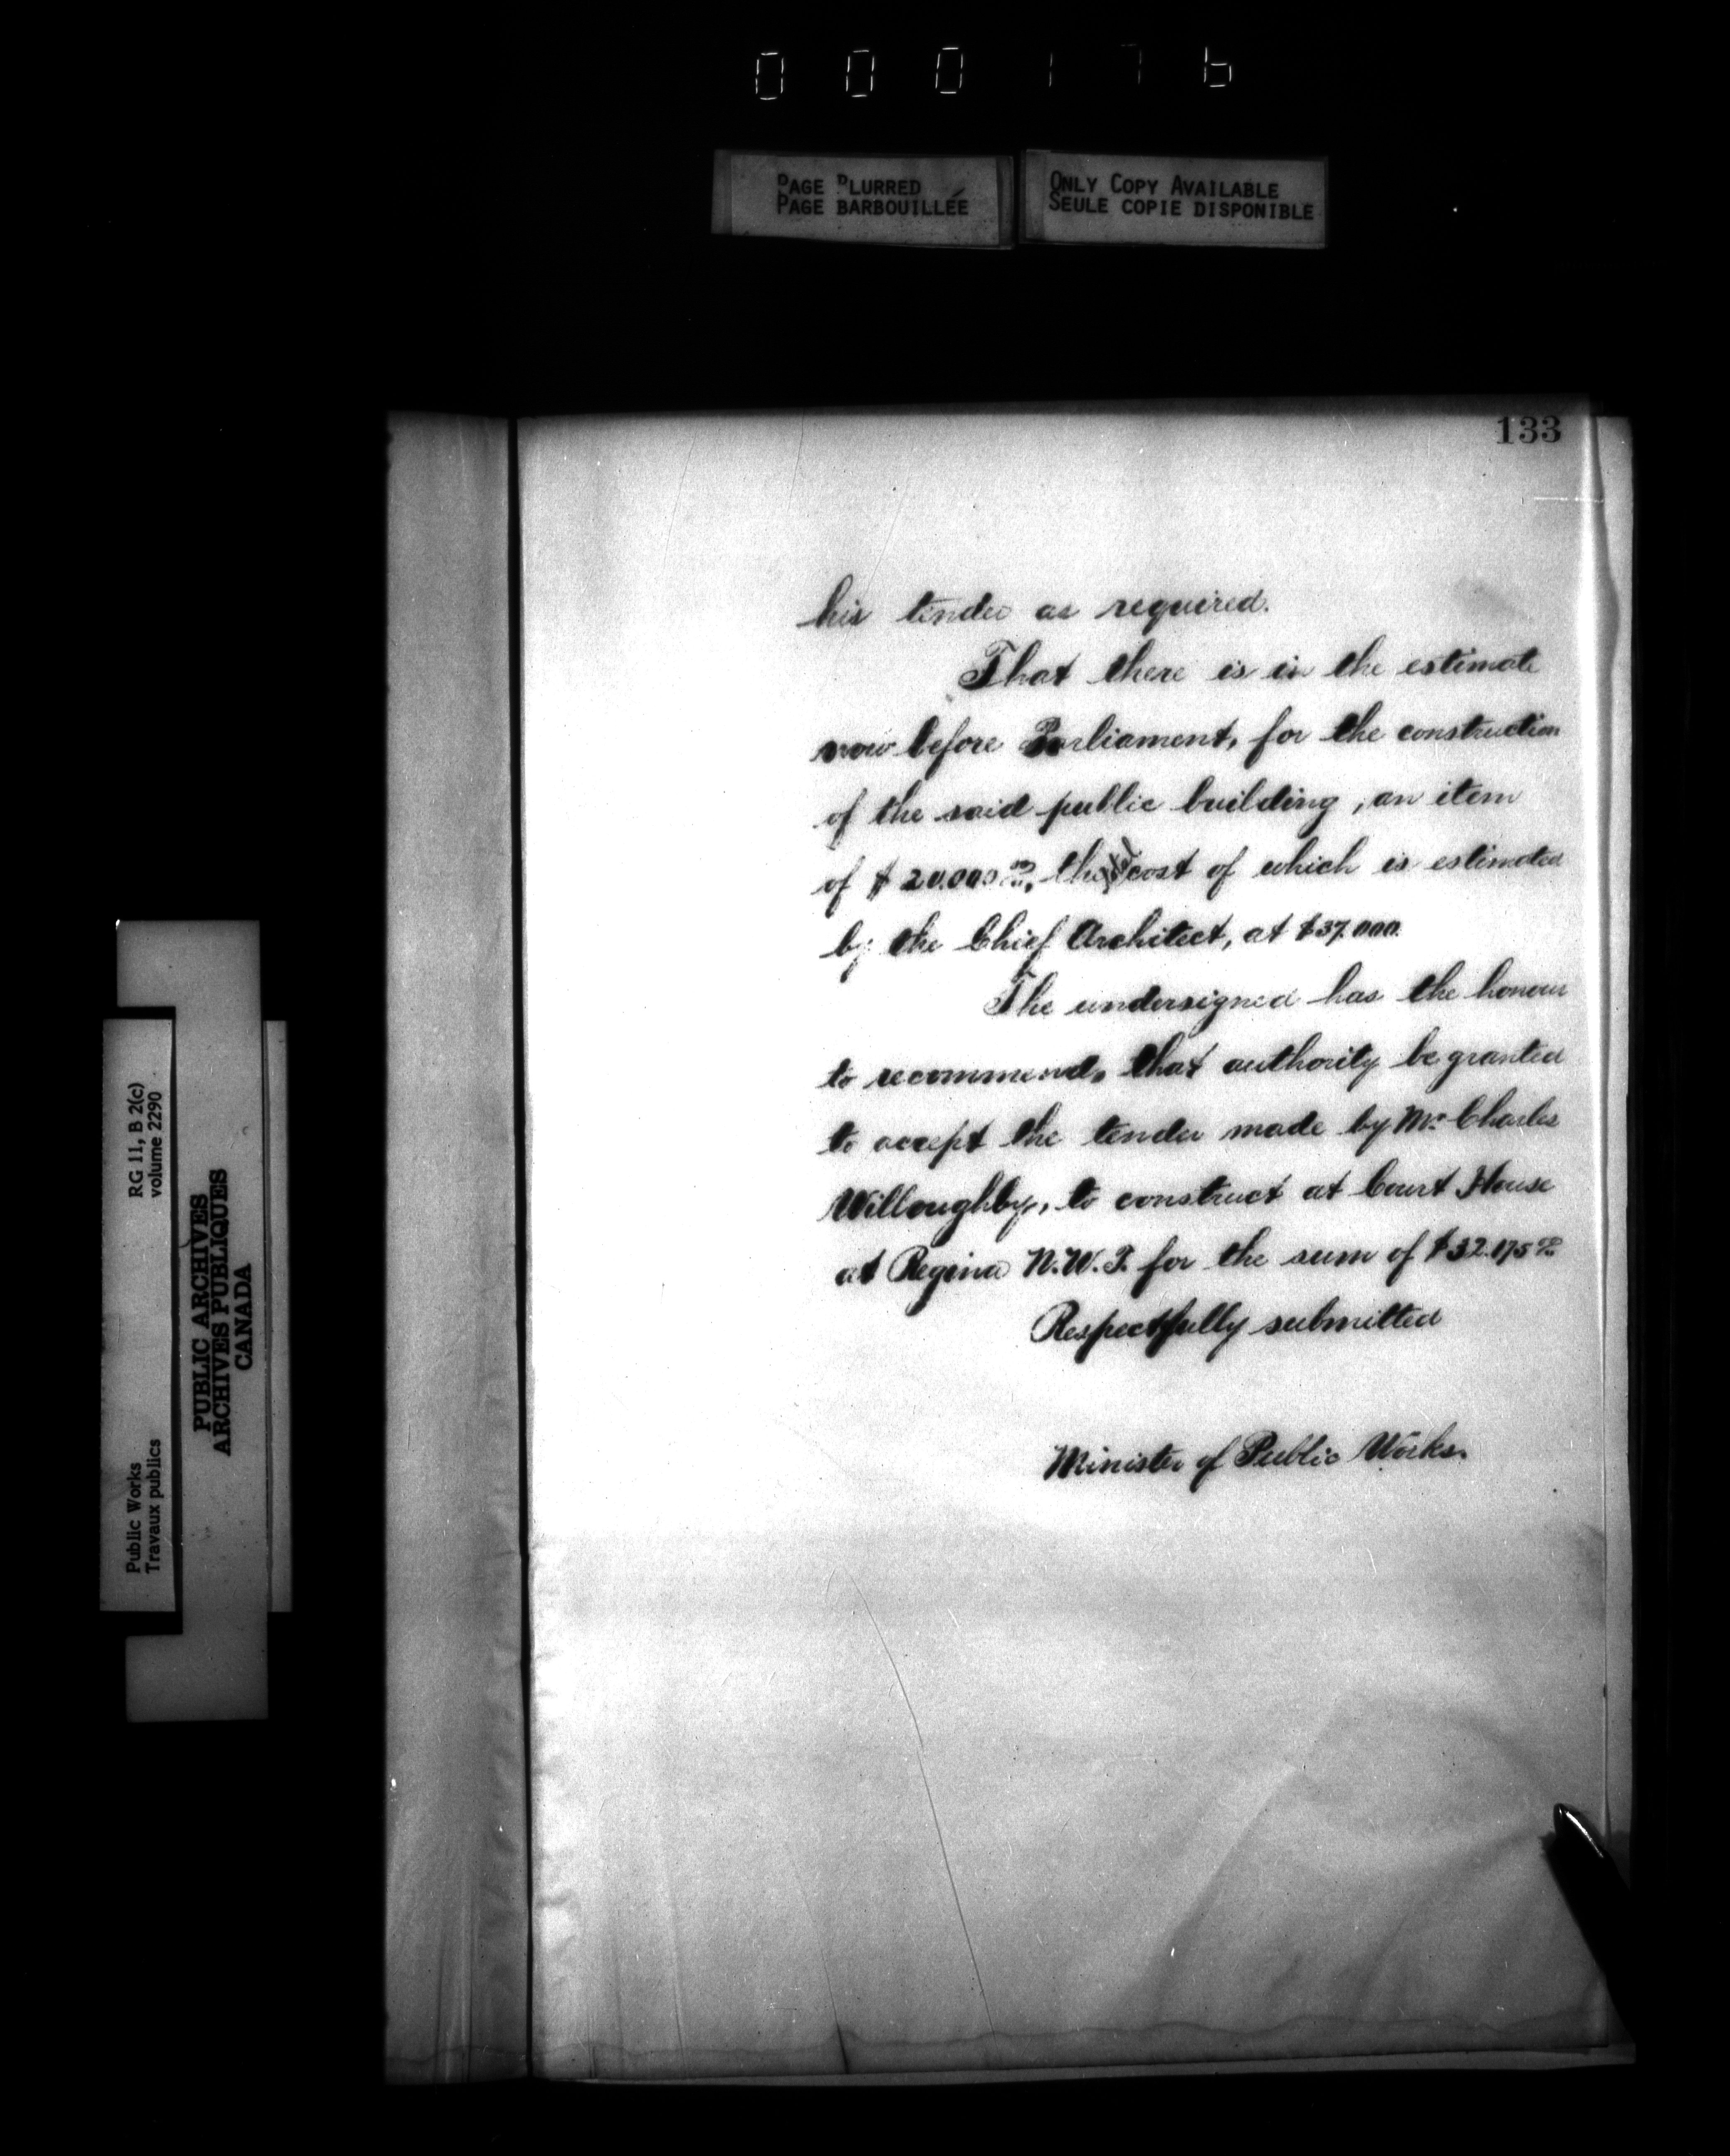 000176
PAGE BLURRED
PAGE BARBOUILLÉE
ONLY COPY AVAILABLE
SEULE COPIE DISPONIBLE
133
his tender as required.
That there is in the estimate
now before Parliament, for the construction
of the said public building, an item
of $20.000 00/00, the cost of which is estimated
by the Chief Architect, at $37.000.
The undersigned has the honour
to recommend, that authority be granted
to accept the tender made by Mr. Charles
Willoughby, to construct at Court House
at Regina N.W.T. for the sum of $32.175 00/00
Respectfully submitted
Minister of Public Works.
RG 11, B 2(c)
volume 2290
Public Works
Travaux publics
PUBLIC ARCHIVES
ARCHIVES PUBLIQUES
CANADA